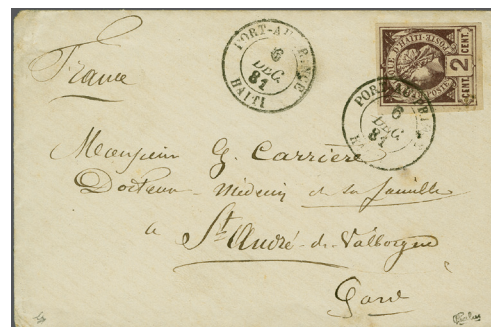 France
PORT-AU-PRINCE
6
DEC.
81
HAITI
2 CENT.
PORT-AU-PRINCE
6
DEC.
81
Monsieur G. Carrière
Docteur-Médecin de la famille
à St André-de-Valborgne
Gard